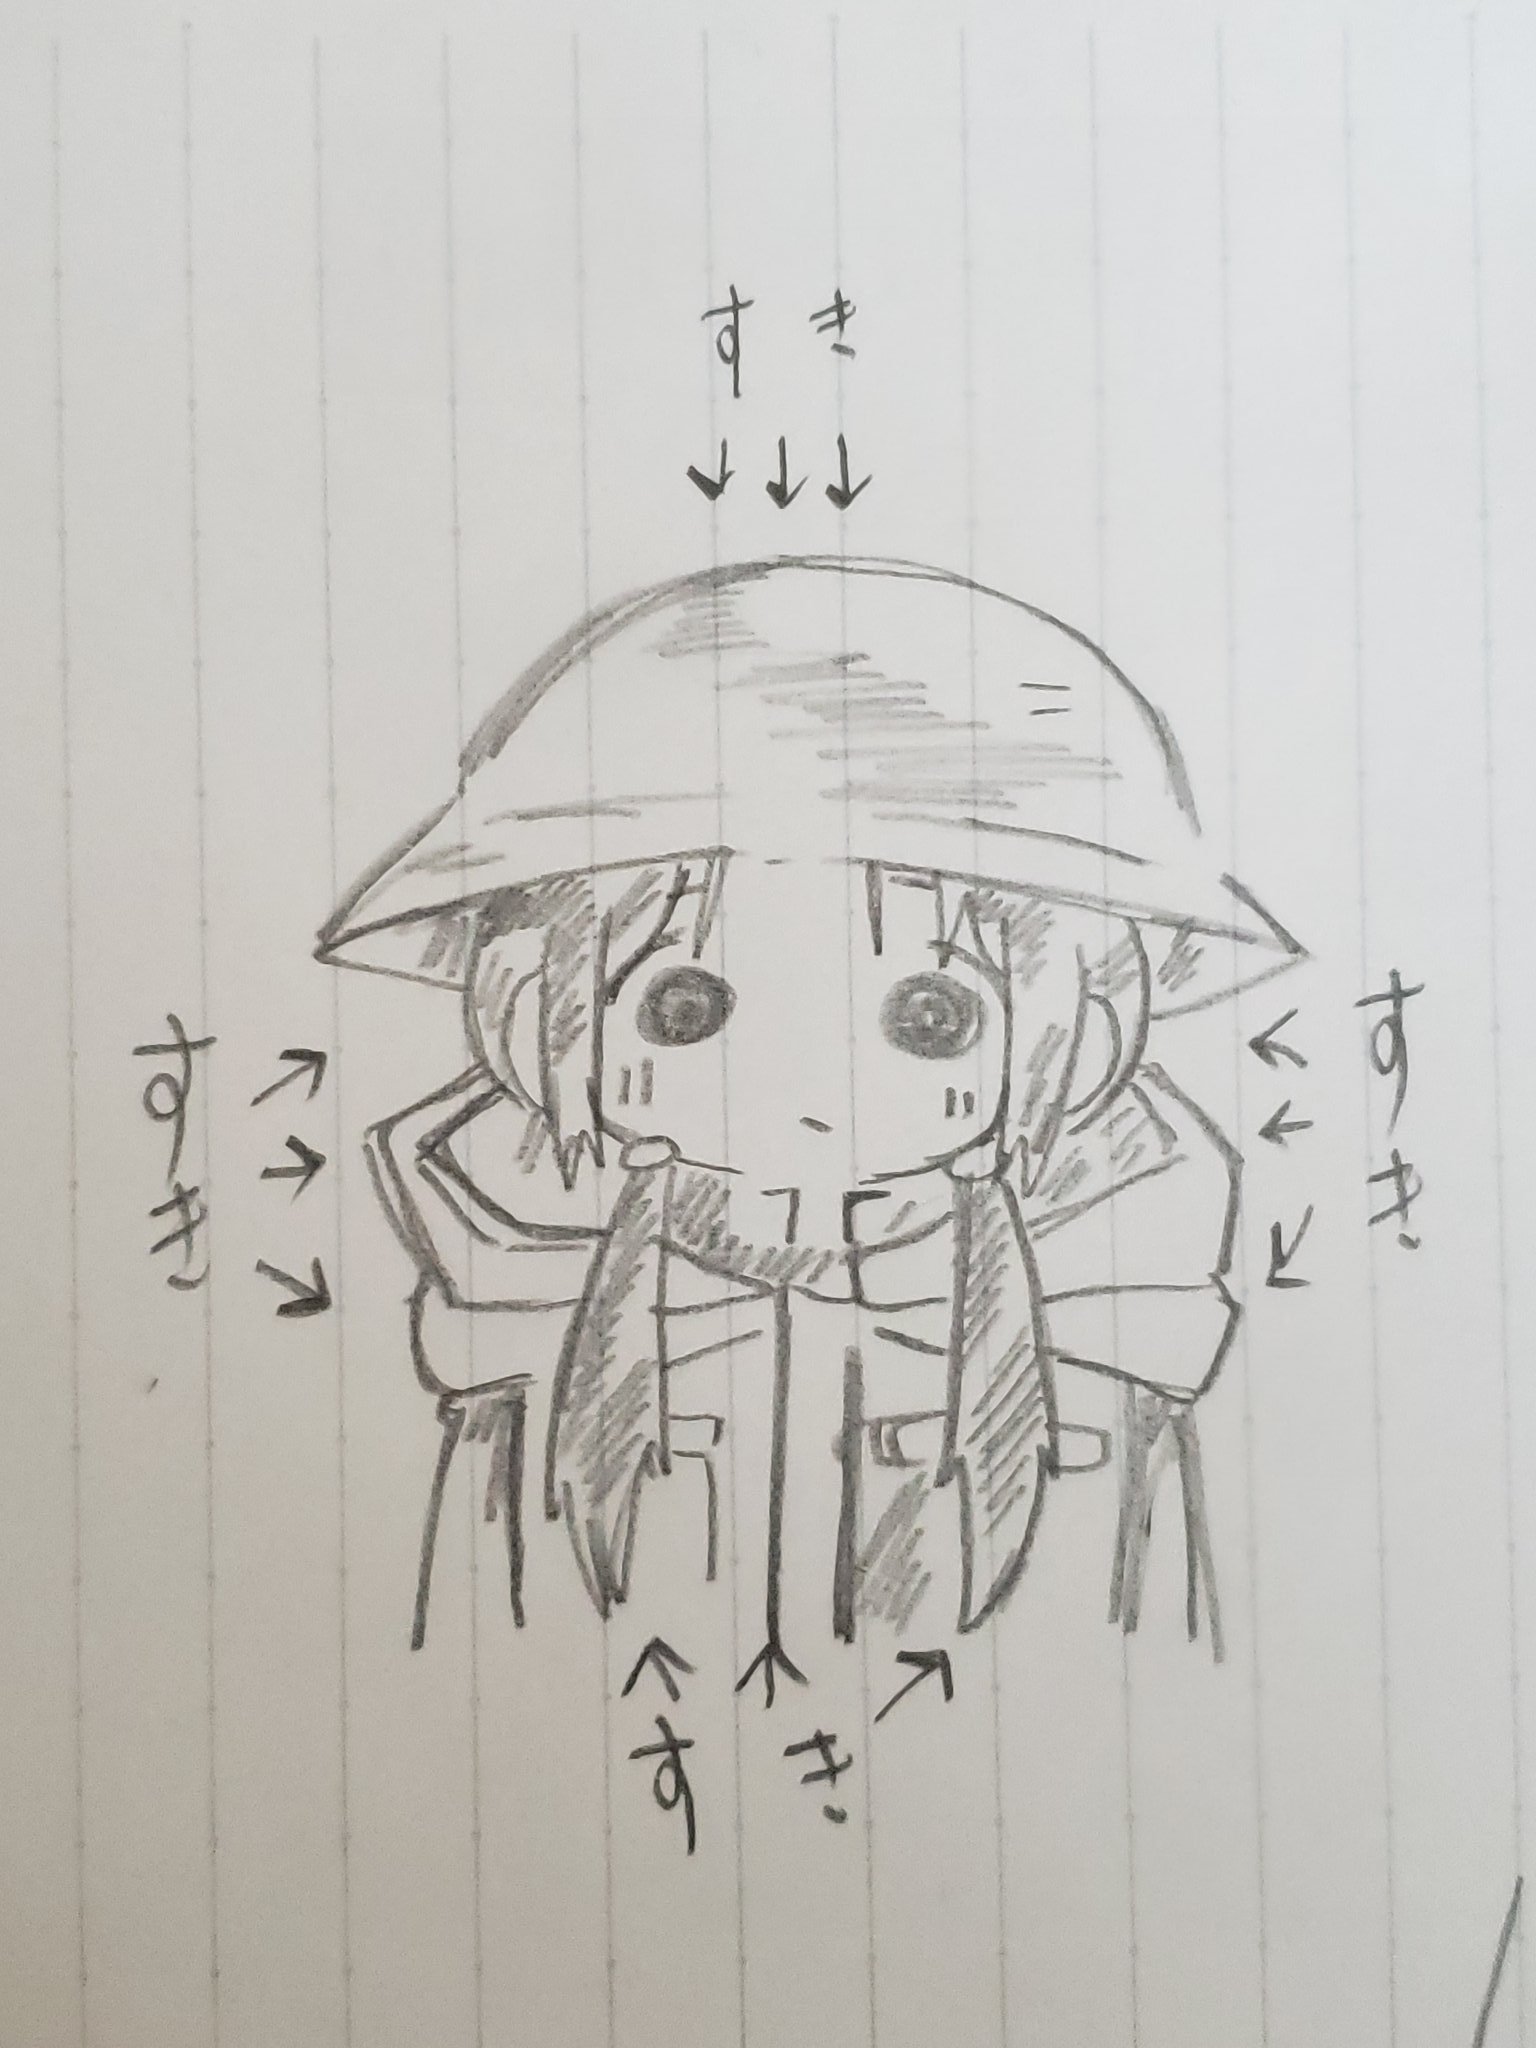 すき
すき
すき
すき